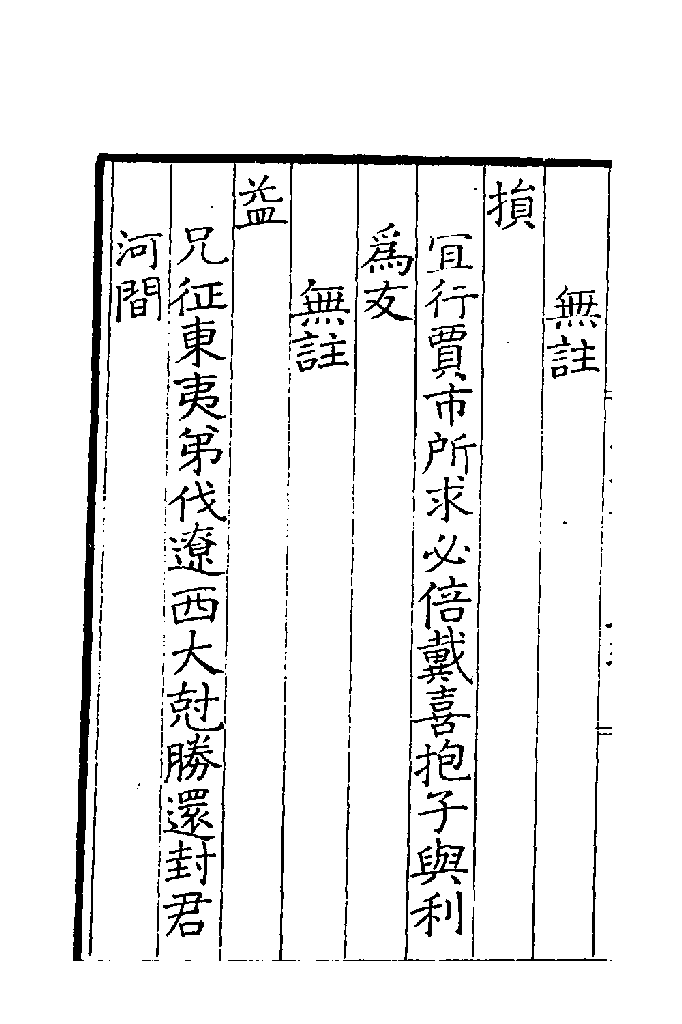 無註
損
冝行賈市所求必倍戴喜抱子與利
爲友
無註
益
兄征東夷弟伐遼西大尅勝還封君
河間